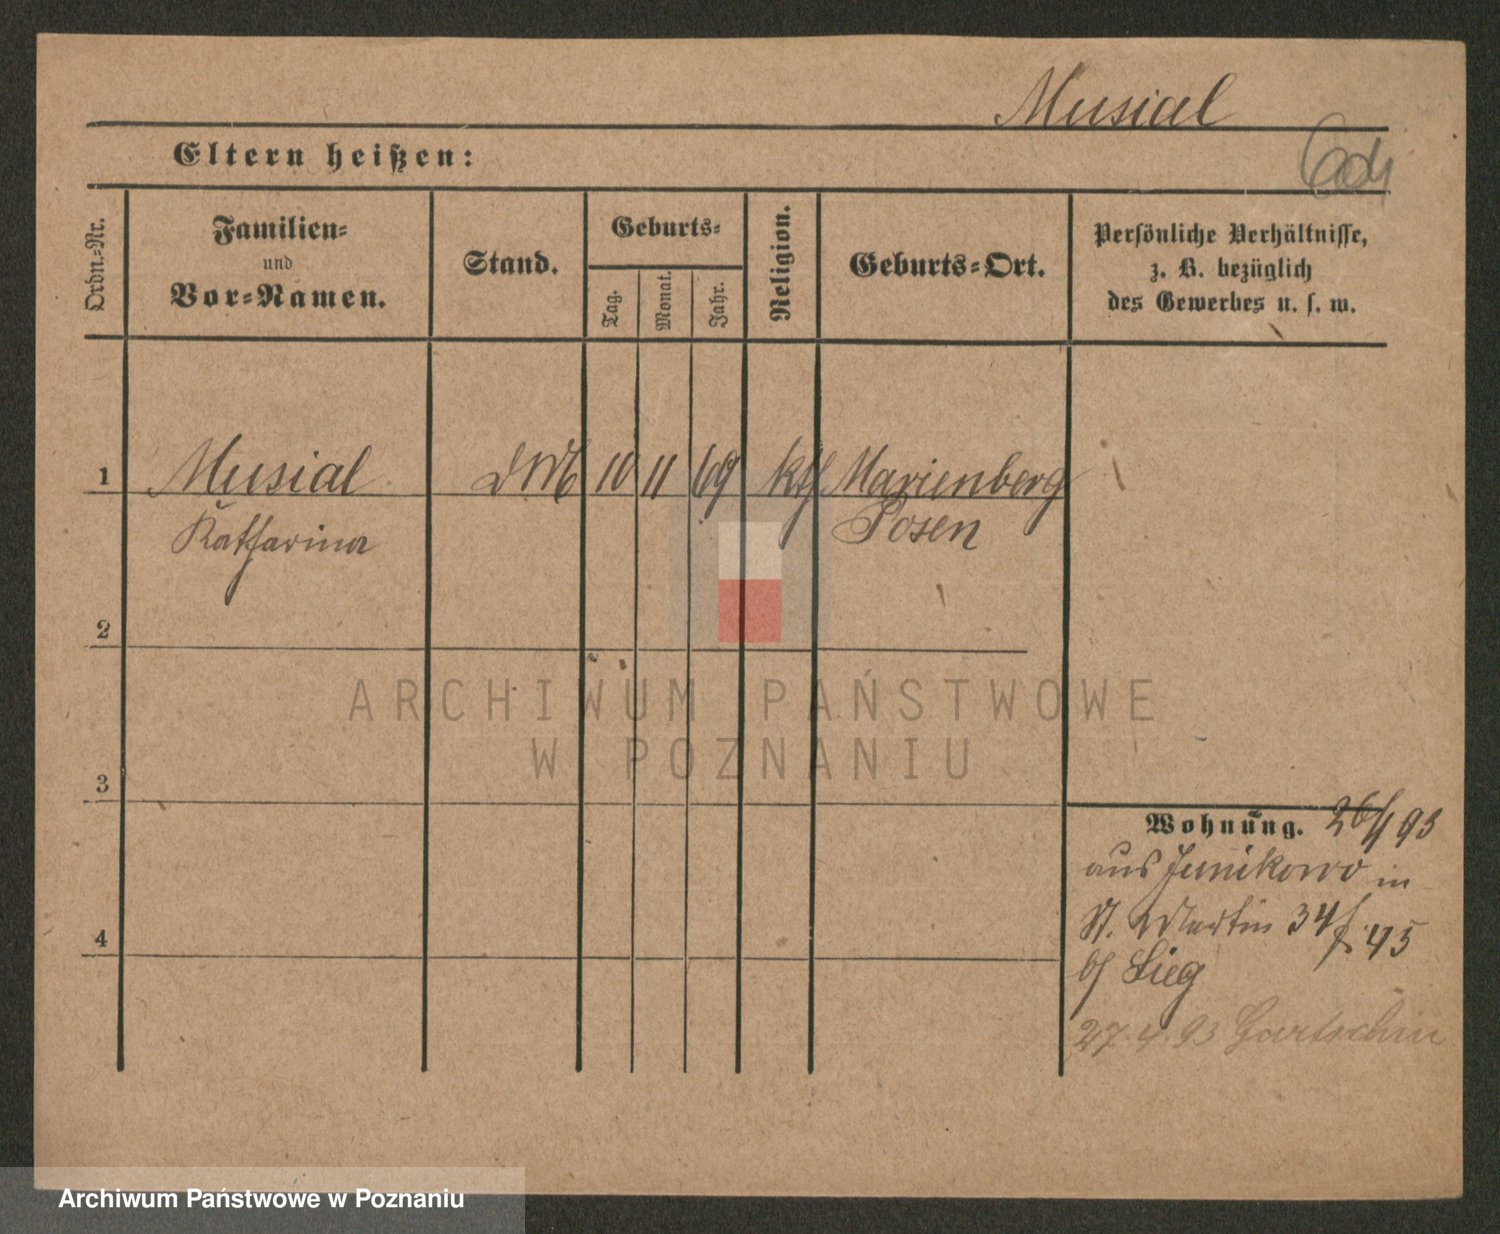 Musial
Eltern heißen:
Ordn.-Nr.
Familien-
und
Vor-Namen.
Stand.
Geburts-
Tag.
Monat.
Jahr.
Religion.
Geburts-Ort.
Persönliche Verhältnisse,
z. B. bezüglich
des Gewerbes u. s. w.
1 Musial 10 11 69 kth Marienberg
Katharina Posen
2
3
4
Wohnung. 93
aus Junikowo in
St. Martin 34
b/ Sieg
27.4.93 Gartschin
ARCHIWUM PAŃSTWOWE
W POZNANIU
Archiwum Państwowe w Poznaniu